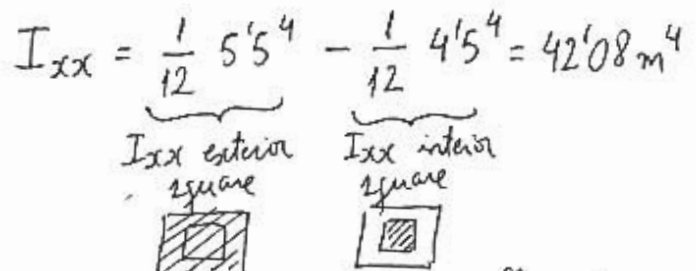 Ixx = 1/12 5'5^4 - 1/12 4'5^4 = 42'08 m^4
Ixx exterior square
Ixx interior square